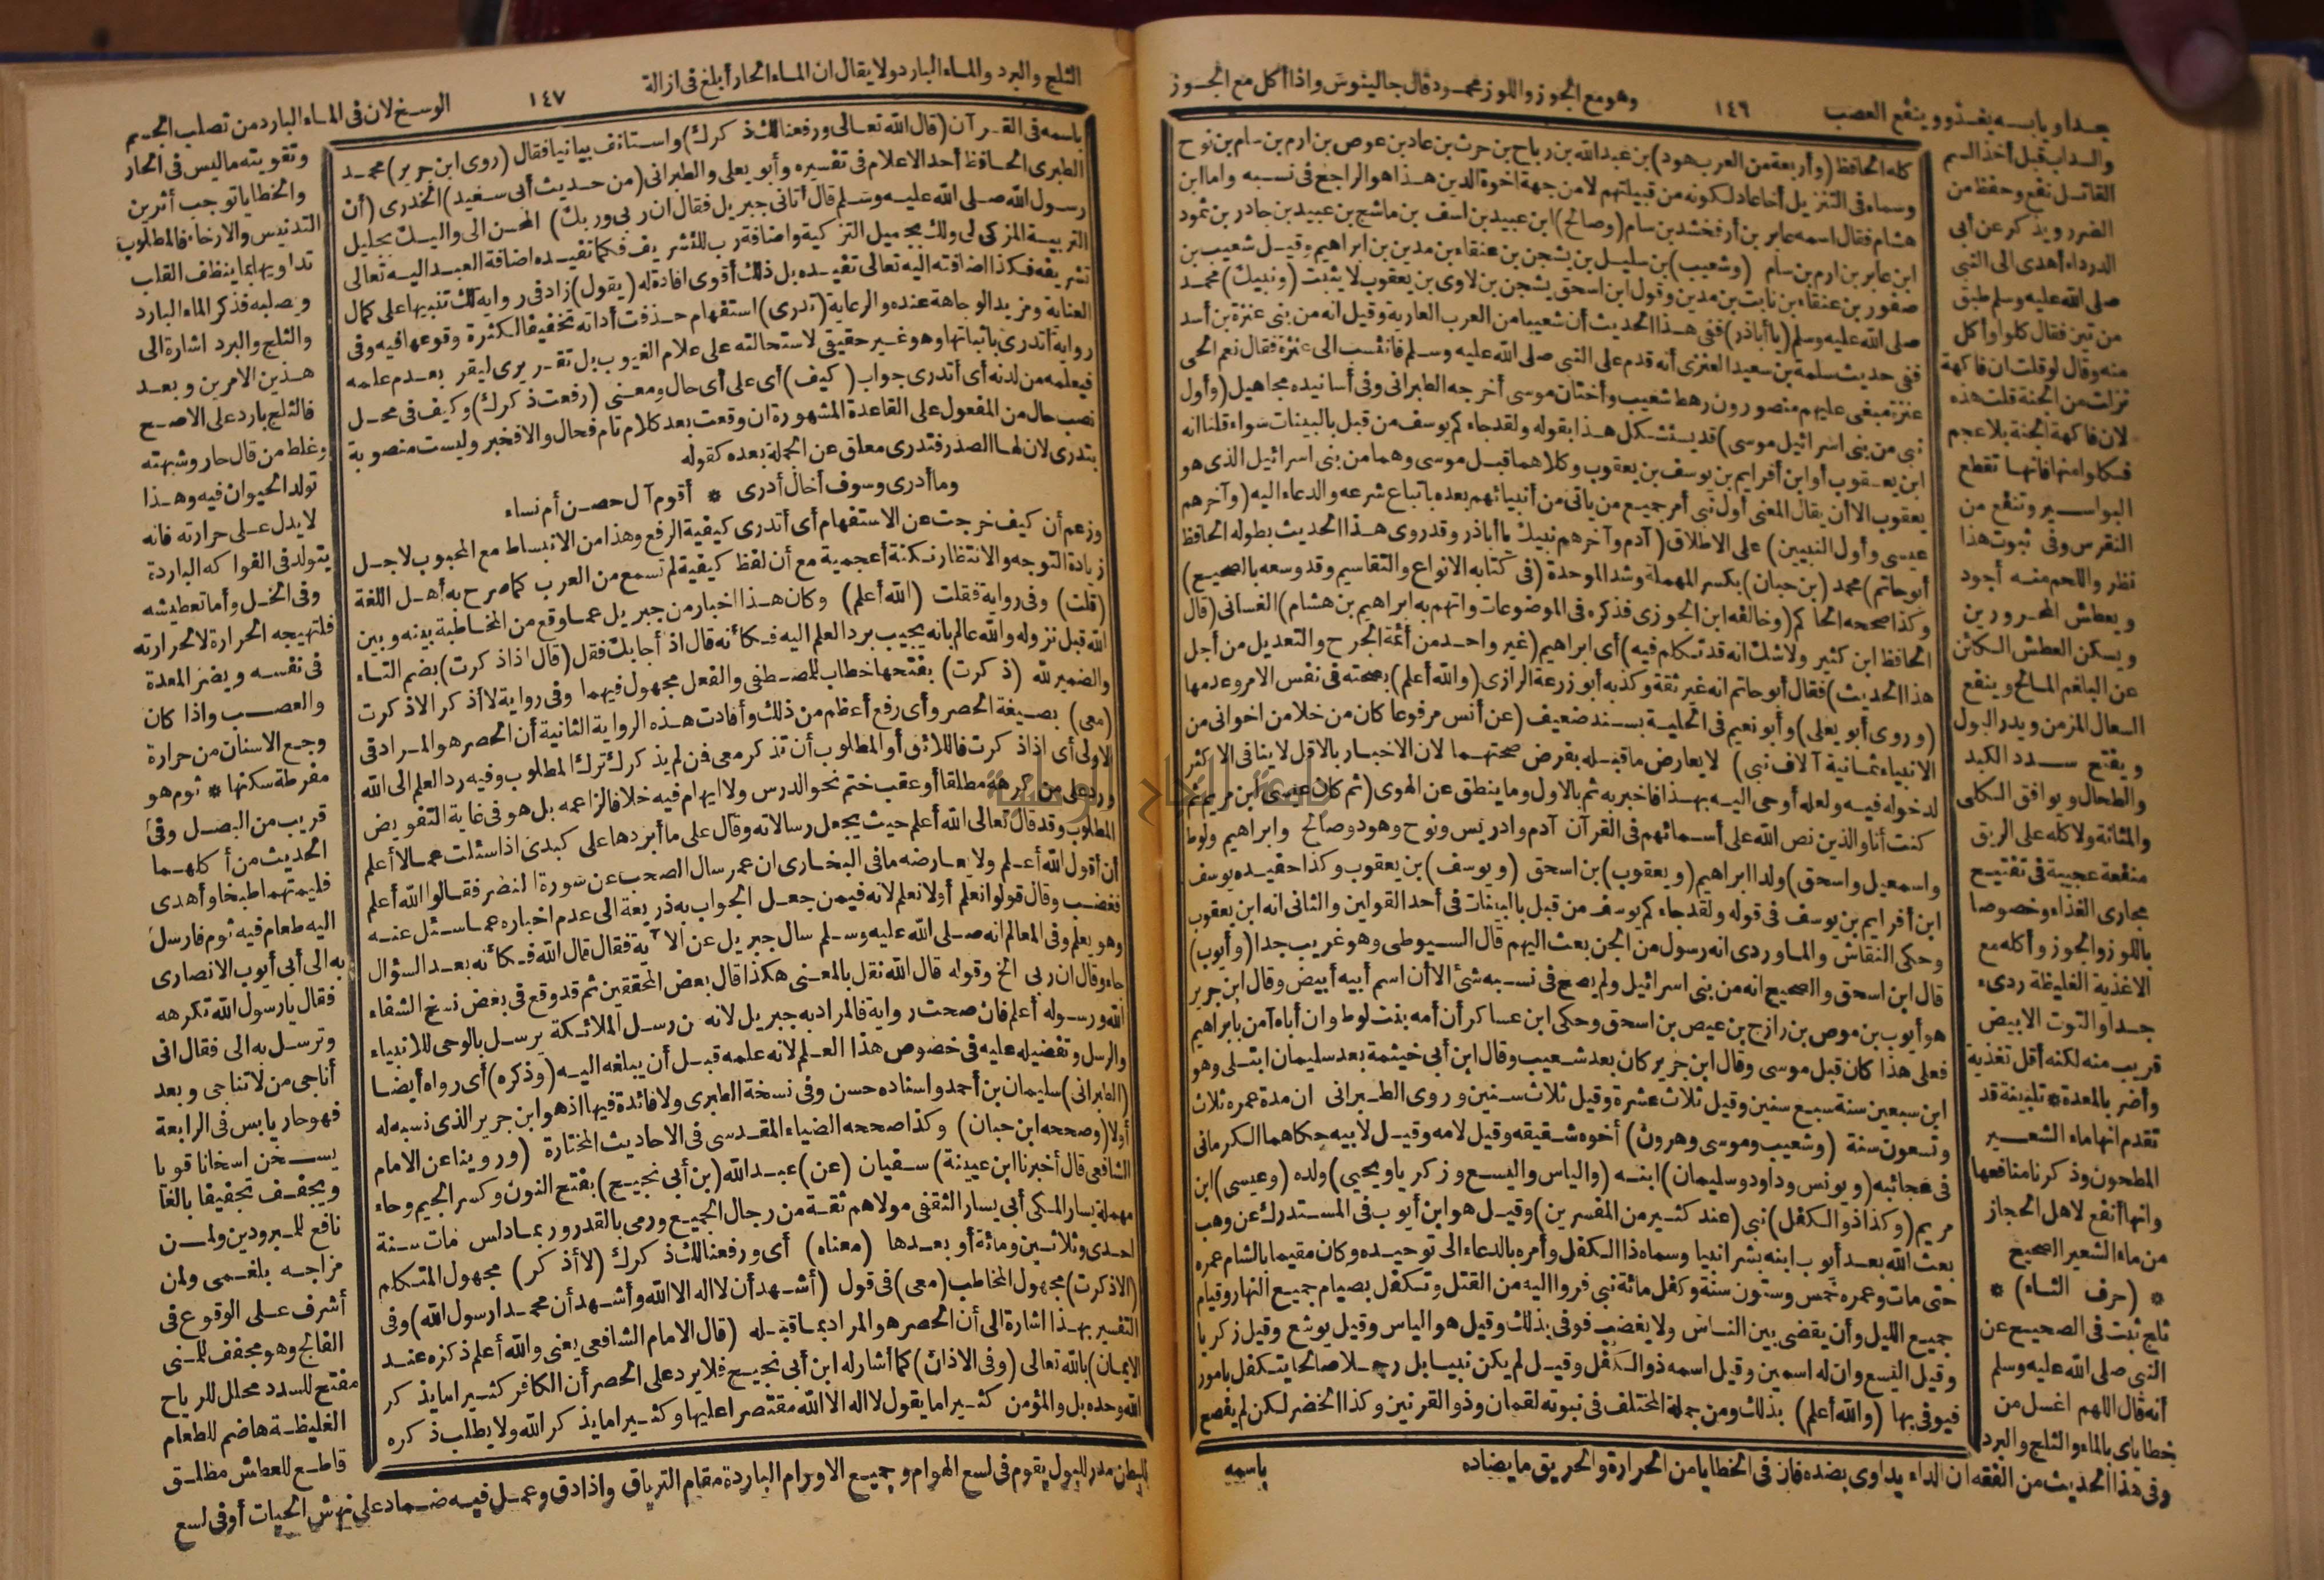 جدا ويابسه يغذو وينفع العصب
١٤٦
وهو مع الجوز واللوز محمود قال جالينوس واذا أكل مع الجوز
والسداب قبل أخذ السم
القاتل نفع وحفظ من
الضرر ويذكر عن أبى
الدرداء أهدى الى النبى
صلى الله عليه وسلم طبق
من تين فقال كلوا وأكل
منه وقال لو قلت ان فاكهة
نزلت من الجنة قلت هذه
لان فاكهة الجنة بلا عجم
فكلوا منها فانها تقطع
البواسير وتنفع من
النقرس وفى ثبوت هذا
نظر واللحم منه أجود
ويعطش المحرورين
ويسكن العطش الكائن
عن البلغم المالح وينفع
السعال المزمن ويدر البول
ويفتح سدد الكبد
والطحال ويوافق الكلى
والمثانة ولا كله على الريق
منفعة عجيبة فى تفتيح
مجارى الغذاء وخصوصا
باللوز والجوز وأكله مع
الاغذية الغليظة ردىء
جدا والتوت الابيض
قريب منه لكنه أقل تغذية
وأضر بالمعدة * تلبينة قد
تقدم انها ماء الشعير
المطحون وذكرنا منافعها
وانها أنفع لاهل الحجاز
من ماء الشعير الصحيح
* (حرف الثاء) *
ثلج ثبت فى الصحيح عن
النبى صلى الله عليه وسلم
أنه قال اللهم اغسل من
خطاياى بالماء والثلج والبرد
وفى هذا الحديث من الفقه ان الداء يداوى بضده فان فى الخطايا من الحرارة والحريق ما يضاده
كله الحافظ (وأربعة من العرب هود) بن عبد الله بن رباح بن حرث بن عاد بن عوص بن ارم بن سام بن نوح
وسماه فى التنزيل أخا عاد لكونه من قبيلتهم لا من جهة اخوة الدين هذا هو الراجع فى نسبه واما ابن
هشام فقال اسمه عابر بن أرفخشد بن سام (وصالح) ابن عبيد بن اسف بن ماشج بن عبيد بن جادر بن ثمود
ابن عابر بن ارم بن سام (وشعيب) بن سليل بن يشجن بن عنقاء بن مدين بن ابراهيم وقيل شعيب بن
صفور بن عنقاء بن نابت بن مدين وقول ابن اسحق يشجن بن لاوى بن يعقوب لا يثبت (ونبيك) محمد
صلى الله عليه وسلم (يا أباذر) ففى هذا الحديث أن شعيبا من العرب العاربة وقيل انه من بنى عنزة بن أسد
ففى حديث سلمة بن سعيد العنزى أنه قدم على النبى صلى الله عليه وسلم فانتسب الى عنزة فقال نعم الحى
عنزة مبغى عليهم منصورون رهط شعيب وأختان موسى أخرجه الطبرانى وفى أسانيده مجاهيل (وأول
نبى من بنى اسرائيل موسى) قد يستشكل هذا بقوله ولقد جاءكم يوسف من قبل بالبينات سواء قلنا انه
ابن يعقوب أو ابن أفرايم بن يوسف بن يعقوب وكلاهما قبل موسى وهما من بنى اسرائيل الذى هو
يعقوب الا أن يقال المعنى أول نبى أمر جميع من يأتى من أنبيائهم بعده باتباع شرعه والدعاء اليه (وآخرهم
عيسى وأول النبيين) على الاطلاق (آدم وآخرهم نبيك يا أباذر وقد روى هذا الحديث بطوله الحافظ
أبو حاتم) محمد (بن حبان) بكسر المهملة وشد الموحدة (فى كتابه الانواع والتقاسيم وقد وسعه بالصحيح)
وكذا صححه الحاكم (وخالفه ابن الجوزى فذكره فى الموضوعات واتهم به ابراهيم بن هشام) الغسانى (قال
الحافظ ابن كثير ولا شك انه قد تكلم فيه) أى ابراهيم (غير واحد من أئمة الجرح والتعديل من أجل
هذا الحديث) فقال أبو حاتم انه غير ثقة وكذبه أبو زرعة الرازى (والله أعلم) بصحته فى نفس الامر وعدمها
(وروى أبو يعلى) وأبو نعيم فى الحلية بسند ضعيف (عن أنس مرفوعا كان من خلا من اخوانى من
الانبياء ثمانية آلاف نبى) لا يعارض ما قبله بفرض صحتهما لان الاخبار بالاقل لا ينافى الاكثر
لدخوله فيه ولعله أوحى اليه بهذا فاخبر به ثم بالاول وما ينطق عن الهوى (ثم كان عيسى ابن مريم ثم
كنت أنا والذين نص الله على أسمائهم فى القرآن آدم وادريس ونوح وهود وصالح وابراهيم ولوط
واسمعيل واسحق) ولدا ابراهيم (ويعقوب) بن اسحق (ويوسف) بن يعقوب وكذا حفيده يوسف
ابن أفرايم بن يوسف فى قوله ولقد جاءكم يوسف من قبل بالبينات فى أحد القولين والثانى انه ابن يعقوب
وحكى النقاش والماوردى انه رسول من الجن بعث اليهم قال السيوطى وهو غريب جدا (وأيوب)
قال ابن اسحق والصحيح انه من بنى اسرائيل ولم يصح فى نسبه شئ الا أن اسم أبيه أبيض وقال ابن جرير
هو أيوب بن موص بن رازح بن عيص بن اسحق وحكى ابن عساكر أن أمه بنت لوط وان أباه آمن بابراهيم
فعلى هذا كان قبل موسى وقال ابن جرير كان بعد شعيب وقال ابن أبى خيثمة بعد سليمان ابتلى وهو
ابن سبعين سنة سبع سنين وقيل ثلاث عشرة وقيل ثلاث سنين وروى الطبرانى ان مدة عمره ثلاث
وتسعون سنة (وشعيب وموسى وهرون) أخوه شقيقه وقيل لامه وقيل لابيه حكاهما الكرمانى
فى عجائبه (ويونس وداود وسليمان) ابنه (والياس واليسع وزكريا ويحيى) ولده (وعيسى) ابن
مريم (وكذا ذو الكفل) نبى (عند كثير من المفسرين) وقيل هو ابن أيوب فى المستدرك عن وهب
بعث الله بعد أيوب ابنه بشر انبيا وسماه ذا الكفل وأمره بالدعاء الى توحيده وكان مقيما بالشام عمره
حتى مات وعمره خمس وستون سنة وكفل مائة نبى فروا اليه من القتل وتكفل بصيام جميع النهار وقيام
جميع الليل وأن يقضى بين الناس ولا يغضب فوفى بذلك وقيل هو الياس وقيل يوشع وقيل زكريا
وقيل اليسع وان له اسمين وقيل اسمه ذو الكفل وقيل لم يكن نبيا بل رجلا صالحا يتكفل بامور
فيوفى بها (والله أعلم) بذلك ومن جملة المختلف فى نبوته لقمان وذو القرنين وكذا الخضر لكن لم يفصح
باسمه
الثلج والبرد والماء البارد ولا يقال ان الماء الحار أبلغ فى ازالة
١٤٧
الوسخ لان فى الماء البارد من تصلب الجسم
باسمه فى القرآن (قال الله تعالى ورفعنا لك ذكرك) واستانف بيانيا فقال (روى ابن جرير) محمد
الطبرى الحافظ أحد الاعلام فى تفسيره وأبو يعلى والطبرانى (من حديث أبى سعيد) الخدرى (أن
رسول الله صلى الله عليه وسلم قال أتانى جبريل فقال ان ربى وربك) المحسن الى واليك بجليل
التربية المزكى لى ولك بجميل التزكية واضافة رب للتشريف فكما تفيده اضافة العبد اليه تعالى
تشريفه فكذا اضافته اليه تعالى تفيده بل ذلك أقوى افادة له (يقول) زاد فى رواية لك تنبيها على كمال
العناية ومزيد الوجاهة عنده والرعاية (تدرى) استفهام حذفت أداته تخفيفا لكثرة وقوعها فيه وفى
رواية أتدرى باثباتها وهو غير حقيقى لاستحالته على علام الغيوب بل تقريرى ليقر بعدم علمه
فيعلمه من لدنه أى أتدرى جواب (كيف) أى على أى حال ومعنى (رفعت ذكرك) وكيف فى محل
نصب حال من المفعول على القاعدة المشهورة ان وقعت بعد كلام تام فحال والا فخبر وليست منصوبة
بتدرى لان لها الصدر فتدرى معلق عن الجملة بعده كقوله
وما أدرى وسوف أخال أدرى * أقوم آل حصن أم نساء
وزعم أن كيف خرجت عن الاستفهام أى أتدرى كيفية الرفع وهذا من الانبساط مع المحبوب لاجل
زيادة التوجه والانتظار نكتة أعجمية مع أن لفظ كيفية لم تسمع من العرب كما صرح به أهل اللغة
(قلت) وفى رواية فقلت (الله أعلم) وكان هذا اخبار من جبريل عما وقع من المخاطبة بينه وبين
الله قبل نزوله والله عالم بانه يجيب برد العلم اليه فكأنه قال اذ أجابك فقل (قال اذا ذكرت) بضم التاء
والضمير لله (ذكرت) بفتحها خطاب للمصطفى والفعل مجهول فيهما وفى رواية لا أذكر الا ذكرت
(معى) بصيغة الحصر وأى رفع أعظم من ذلك وأفادت هذه الرواية الثانية أن الحصر هو المراد فى
الاولى أى اذا ذكرت فاللائق أو المطلوب أن تذكر معى فمن لم يذكرك ترك المطلوب وفيه رد العلم الى الله
ورد على من كرهه مطلقا أو عقب ختم نحو الدرس ولا ايهام فيه خلافا لزاعمه بل هو فى غاية التفويض
المطلوب وقد قال تعالى الله أعلم حيث يجعل رسالاته وقال على ما أبردها على كبدى اذا سئلت عما لا أعلم
أن أقول الله أعلم ولا يعارضه ما فى البخارى ان عمر سال الصحب عن سورة النصر فقالوا الله أعلم
فغضب وقال قولوا نعلم أو لا نعلم لانه فيمن جعل الجواب به ذريعة الى عدم اخباره عما سئل عنه
وهو يعلم وفى المعالم انه صلى الله عليه وسلم سال جبريل عن الآية فقال قال الله فكأنه بعد السؤال
جاء وقال ان ربى الخ وقوله قال الله نقل بالمعنى هكذا قال بعض المحققين ثم قد وقع فى بعض نسخ الشفاء
الله ورسوله أعلم فان صحت رواية فالمراد به جبريل لانه من رسل الملائكة يرسل بالوحى للانبياء
والرسل وتفضيله عليه فى خصوص هذا العلم لانه علمه قبل أن يبلغه اليه (وذكره) أى رواه أيضا
(الطبرانى) سليمان بن أحمد واسناده حسن وفى نسخة الطبرى ولا فائدة فيها اذ هو ابن جرير الذى نسبه له
أولا (وصححه ابن حبان) وكذا صححه الضياء المقدسى فى الاحاديث المختارة (وروينا عن الامام
الشافعى قال أخبرنا ابن عيينة) سفيان (عن) عبد الله (بن أبى نجيح) بفتح النون وكسر الجيم وحاء
مهملة يسار المكى أبى يسار الثقفى مولاهم ثقة من رجال الجميع ورمى بالقدر وربما دلس مات سنة
احدى وثلاثين ومائة أو بعدها (معناه) أى ورفعنا لك ذكرك (لا أذكر) مجهول المتكلم
(الا ذكرت) مجهول المخاطب (معى) فى قول (أشهد أن لا اله الا الله وأشهد أن محمدا رسول الله) وفى
التفسير بهذا اشارة الى أن الحصر هو المراد بما قبله (قال الامام الشافعى يعنى والله أعلم ذكره عند
الايمان) بالله تعالى (وفى الاذان) كما أشار له ابن أبى نجيح فلا يرد على الحصر أن الكافر كثيرا ما يذكر
الله وحده بل والمؤمن كثيرا ما يقول لا اله الا الله مقتصرا عليها وكثيرا ما يذكر الله ولا يطلب ذكره
وتقويته ما ليس فى الحار
والخطايا توجب أثرين
التدنيس والارخاء فالمطلوب
تداويها بما ينظف القلب
ويصلبه فذكر الماء البارد
والثلج والبرد اشارة الى
هذين الامرين وبعد
فالثلج بارد على الاصح
وغلط من قال حار وشبهته
تولد الحيوان فيه وهذا
لا يدل على حرارته فانه
يتولد فى الفواكه الباردة
وفى الخل وأما تعطيشه
فلتهييجه الحرارة لا لحرارته
فى نفسه ويضر المعدة
والعصب واذا كان
وجع الاسنان من حرارة
مفرطة سكنها * ثوم هو
قريب من البصل وفى
الحديث من أكلهما
فليمتهما طبخا وأهدى
اليه طعام فيه ثوم فارسل
به الى أبى أيوب الانصارى
فقال يا رسول الله تكرهه
وترسل به الى فقال انى
أناجى من لا تناجى وبعد
فهو حار يابس فى الرابعة
يسخن اسخانا قويا
ويجفف تجفيفا بالغا
نافع للمبرودين ولمن
مزاجه بلغمى ولمن
أشرف على الوقوع فى
الفالج وهو مجفف للمنى
مفتح للسدد محلل للرياح
الغليظة هاضم للطعام
قاطع للعطش مطلق
للبطن مدر للبول يقوم فى لسع الهوام وجميع الاورام الباردة مقام الترياق واذا دق وعمل فيه ضماد على نهش الحيات أو فى لسع